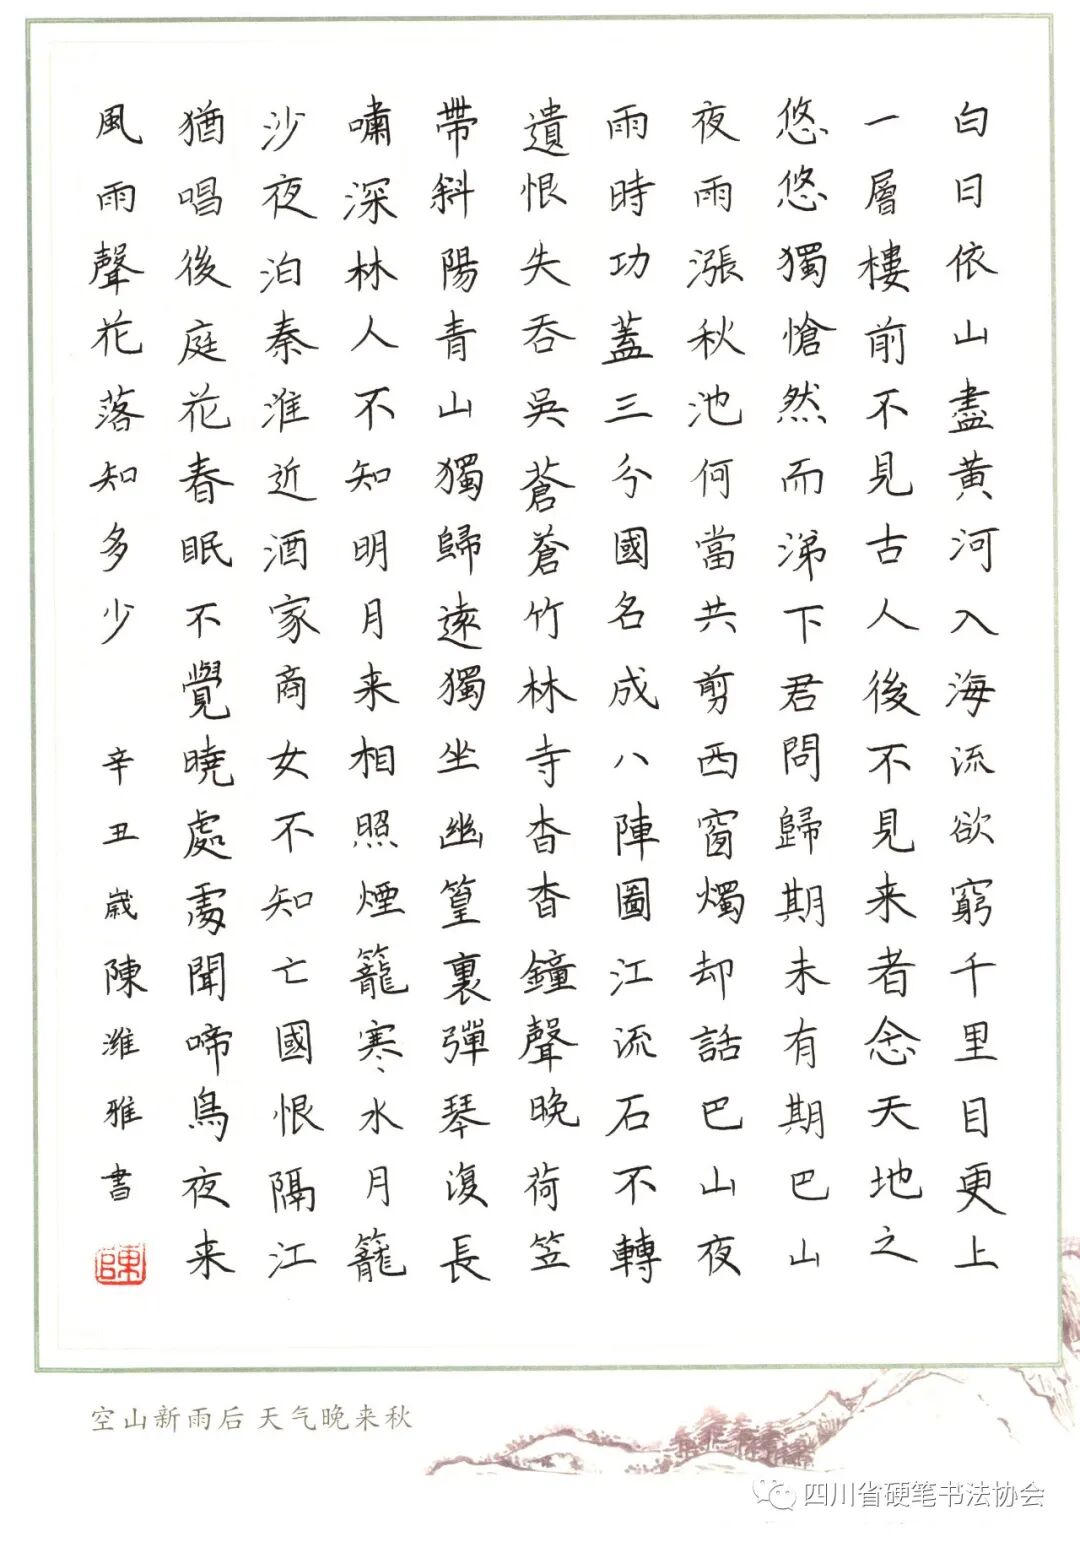 白日依山盡黄河入海流欲窮千里目更上
一層樓前不見古人後不見来者念天地之
悠悠獨愴然而涕下君問歸期未有期巴山
夜雨漲秋池何當共剪西窗燭却話巴山夜
雨時功蓋三分國名成八陣圖江流石不轉
遺恨失吞吳蒼蒼竹林寺杳杳鐘聲晚荷笠
帶斜陽青山獨歸遠獨坐幽篁裏彈琴復長
嘯深林人不知明月来相照煙籠寒水月籠
沙夜泊秦淮近酒家商女不知亡國恨隔江
猶唱後庭花春眠不覺曉處處聞啼鳥夜来
風雨聲花落知多少 辛丑歲陳濰雅書
空山新雨后 天气晚来秋
四川省硬笔书法协会